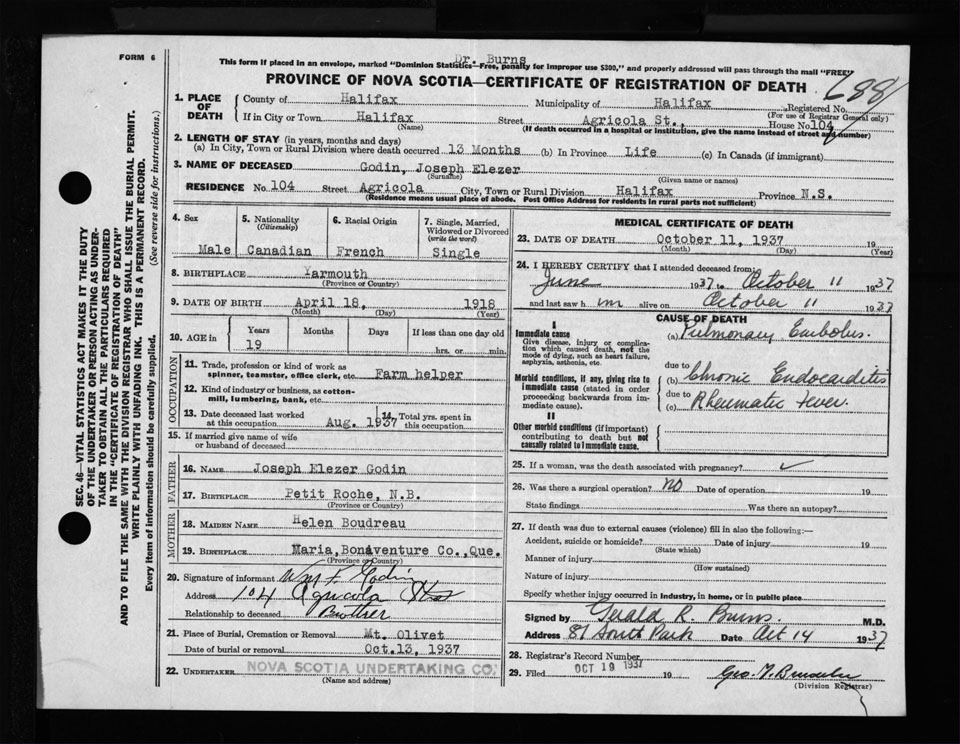 FORM 6
Dr. Burns
This form if placed in an envelope, marked "Dominion Statistics—Free, penalty for improper use $300," and properly addressed will pass through the mail "FREE"
PROVINCE OF NOVA SCOTIA—CERTIFICATE OF REGISTRATION OF DEATH
688
1. PLACE OF DEATH County of Halifax Municipality of Halifax Registered No.
(For use of Registrar General only)
If in City or Town Halifax Street Agricola St., House No. 104
(Name) (If death occurred in a hospital or institution, give the name instead of street and number)
2. LENGTH OF STAY (in years, months and days)
(a) In City, Town or Rural Division where death occurred 13 Months (b) In Province Life (c) In Canada (if immigrant)
3. NAME OF DECEASED Godin, Joseph Elezer
(Surname) (Given name or names)
RESIDENCE No. 104 Street Agricola City, Town or Rural Division Halifax Province N.S.
(Residence means usual place of abode. Post Office Address for residents in rural parts not sufficient)
4. Sex 5. Nationality (Citizenship) 6. Racial Origin 7. Single, Married, Widowed or Divorced (write the word)
Male Canadian French Single
8. BIRTHPLACE Yarmouth
(Province or Country)
9. DATE OF BIRTH April 18, 1918
(Month) (Day) (Year)
10. AGE in Years Months Days If less than one day old
19 hrs. or min.
OCCUPATION
11. Trade, profession or kind of work as spinner, teamster, office clerk, etc. Farm helper
12. Kind of industry or business, as cotton-mill, lumbering, bank, etc.
13. Date deceased last worked at this occupation Aug. 1937 14. Total yrs. spent in this occupation
15. If married give name of wife or husband of deceased
FATHER
16. NAME Joseph Elezer Godin
17. BIRTHPLACE Petit Roche, N.B.
(Province or Country)
MOTHER
18. MAIDEN NAME Helen Boudreau
19. BIRTHPLACE Maria, Bonaventure Co., Que.
(Province or Country)
20. Signature of informant Wm F. Godin
Address 104 Agricola
Relationship to deceased Brother
21. Place of Burial, Cremation or Removal Mt. Olivet
Date of burial or removal Oct. 13, 1937
22. UNDERTAKER NOVA SCOTIA UNDERTAKING CO.
(Name and address)
MEDICAL CERTIFICATE OF DEATH
23. DATE OF DEATH October 11, 1937 19
(Month) (Day) (Year)
24. I HEREBY CERTIFY that I attended deceased from:
June 1937 to October 11 1937
and last saw him alive on October 11 1937
CAUSE OF DEATH
I
Immediate cause
Give disease, injury or complication which caused death, not the mode of dying, such as heart failure, asphyxia, asthenia, etc.
(a) Pulmonary Embolus.
due to
Morbid conditions, if any, giving rise to immediate cause (stated in order proceeding backwards from immediate cause).
(b) Chronic Endocarditis
due to
(c) Rheumatic Fever.
II
Other morbid conditions (if important) contributing to death but not causally related to immediate cause.
25. If a woman, was the death associated with pregnancy? ✓
26. Was there a surgical operation? No Date of operation 19
State findings Was there an autopsy?
27. If death was due to external causes (violence) fill in also the following:—
Accident, suicide or homicide? Date of injury 19
(State which)
Manner of injury
(How sustained)
Nature of injury
Specify whether injury occurred in industry, in home, or in public place
Signed by Gerald R. Burns M.D.
Address 87 South Park Date Oct 14 1937
28. Registrar's Record Number
29. Filed OCT 19 1937 19
(Division Registrar)
SEC. 46—VITAL STATISTICS ACT MAKES IT THE DUTY
OF THE UNDERTAKER OR PERSON ACTING AS UNDER-
TAKER TO OBTAIN ALL THE PARTICULARS REQUIRED
IN THE "CERTIFICATE OF REGISTRATION OF DEATH"
AND TO FILE THE SAME WITH THE DIVISION REGISTRAR WHO SHALL ISSUE THE BURIAL PERMIT.
WRITE PLAINLY WITH UNFADING INK. THIS IS A PERMANENT RECORD.
Every item of information should be carefully supplied. (See reverse side for instructions.)